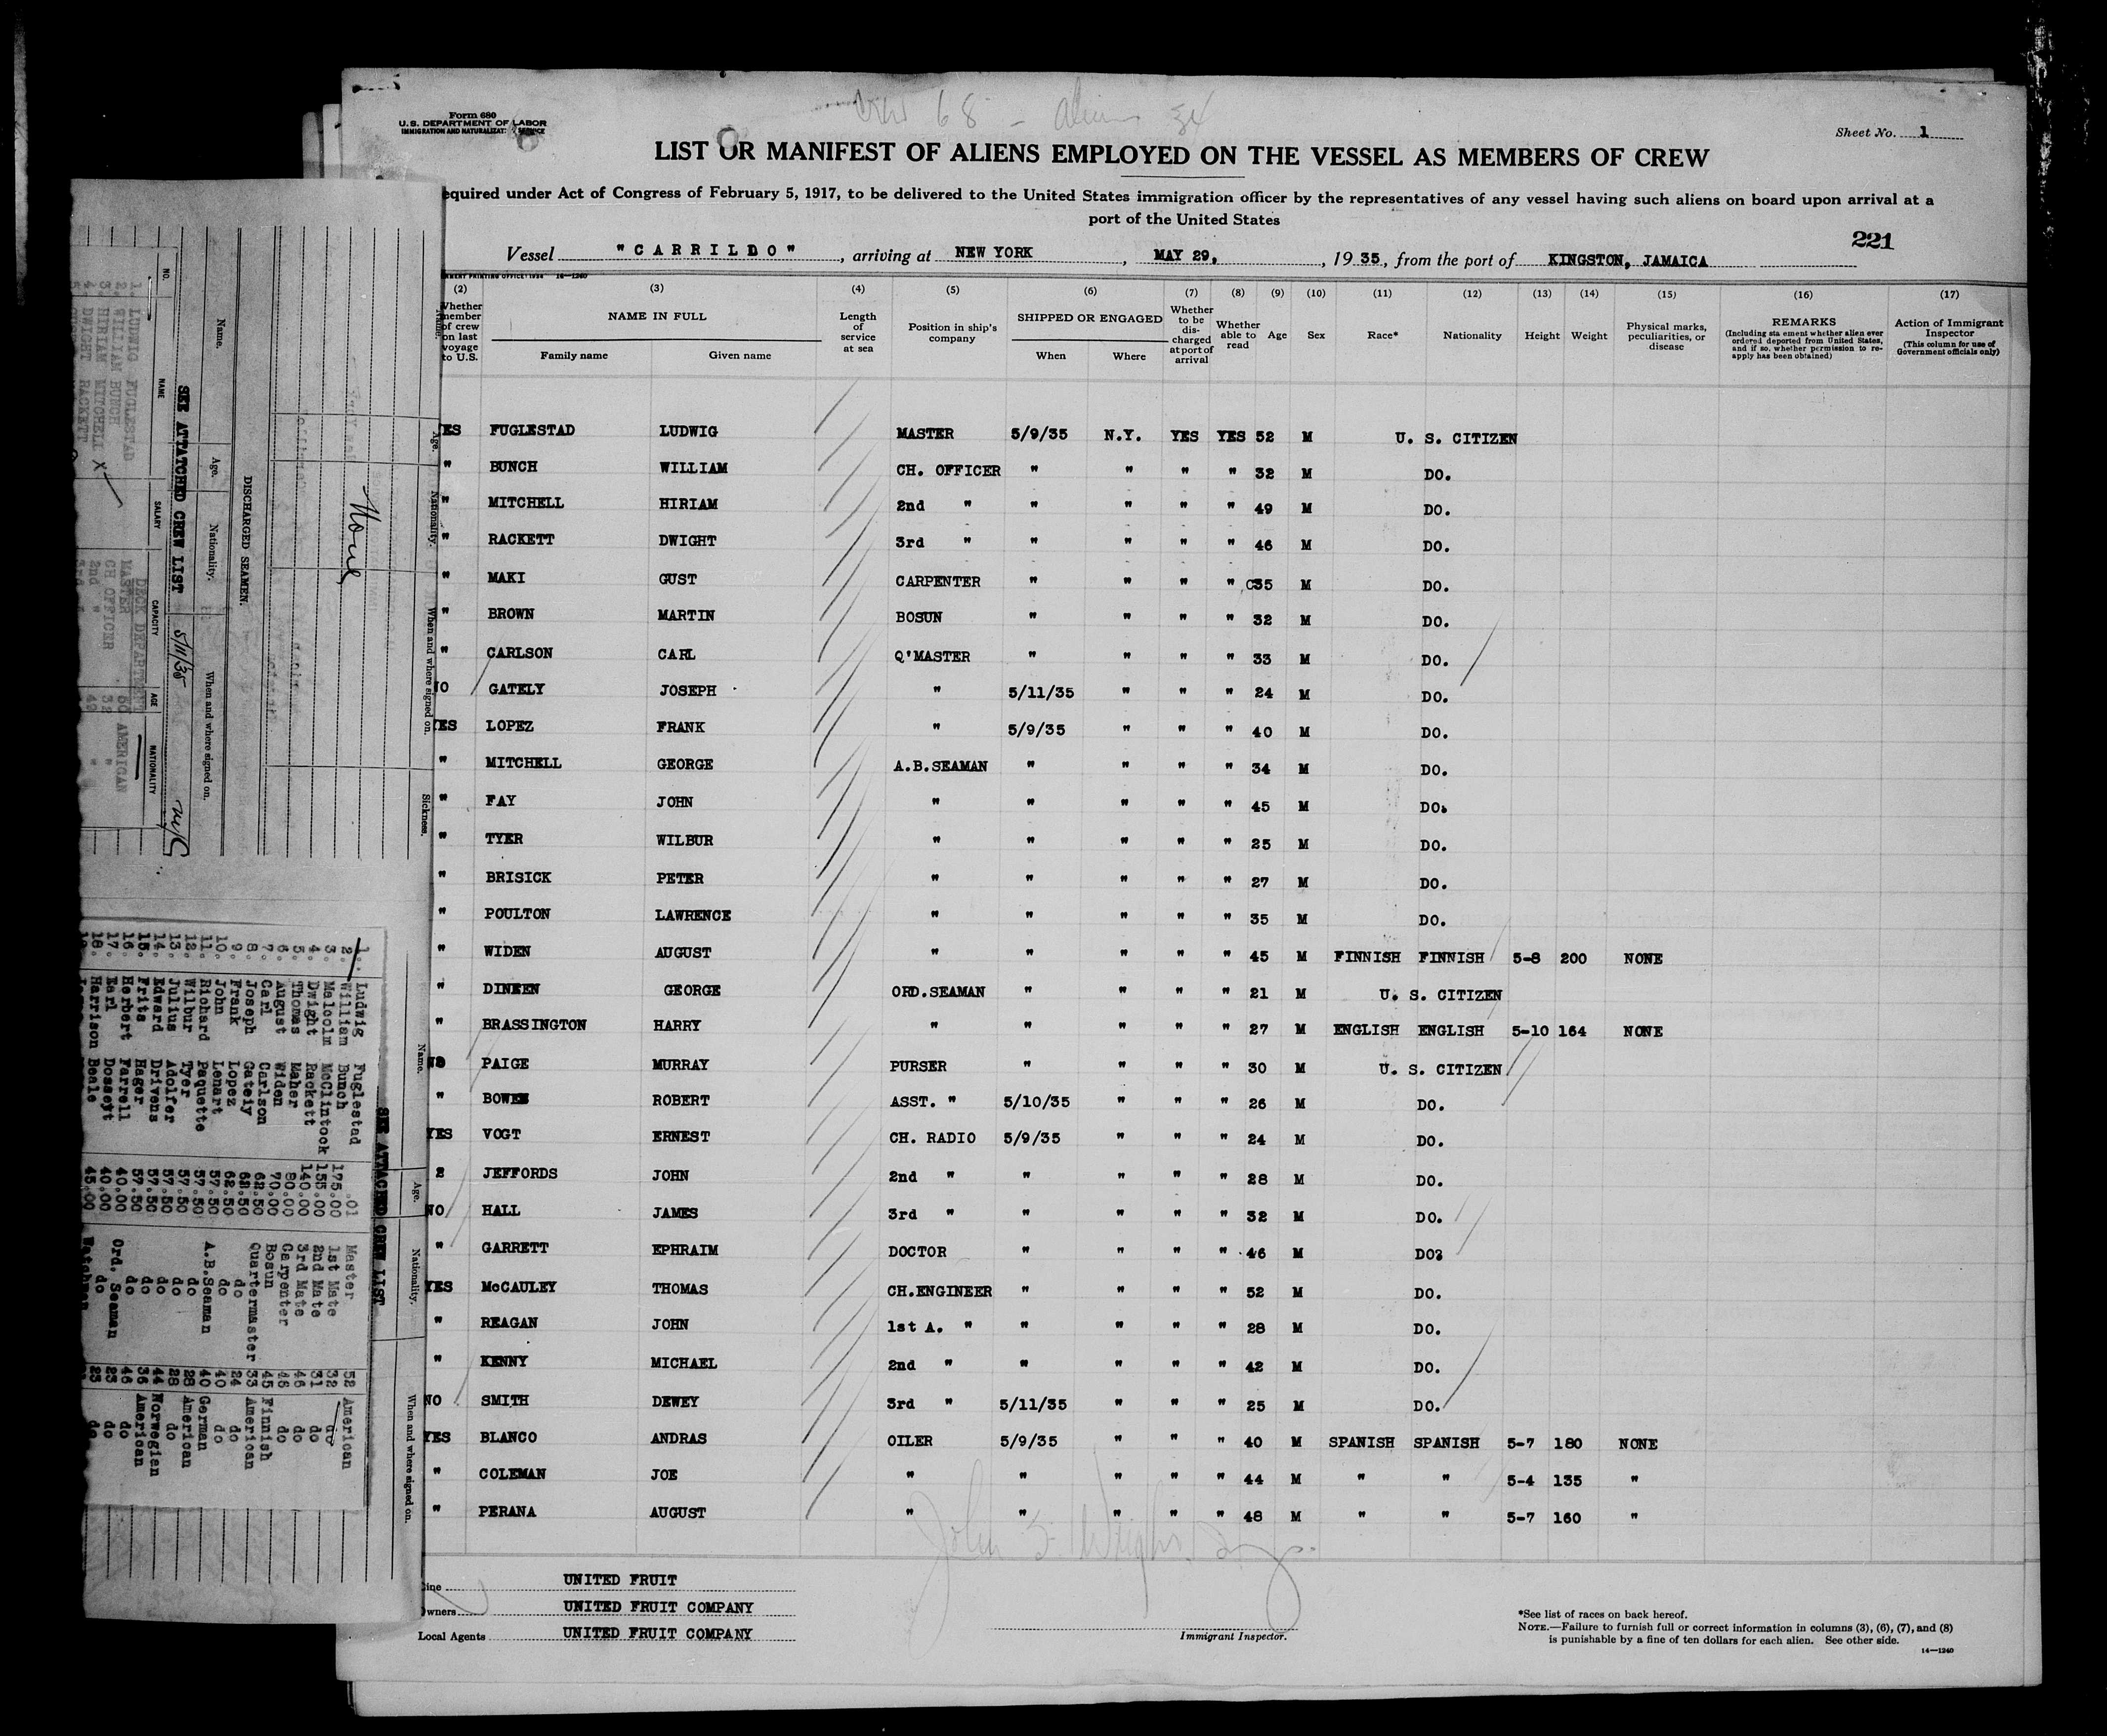 Form 680
U.S. DEPARTMENT OF LABOR
IMMIGRATION AND NATURALIZAT SERVICE
68 - Aliens
Sheet No. 1
LIST OR MANIFEST OF ALIENS EMPLOYED ON THE VESSEL AS MEMBERS OF CREW
equired under Act of Congress of February 5, 1917, to be delivered to the United States immigration officer by the representatives of any vessel having such aliens on board upon arrival at a
port of the United States
221
Vessel "CARRILDO", arriving at NEW YORK, MAY 29, 1935, from the port of KINGSTON, JAMAICA
(2) (3) (4) (5) (6) (7) (8) (9) (10) (11) (12) (13) (14) (15) (16) (17)
Whether member of crew on last voyage to U.S. NAME IN FULL Family name Given name Length of service at sea Position in ship's company SHIPPED OR ENGAGED When Where Whether to be discharged at port of arrival Whether able to read Age Sex Race* Nationality Height Weight Physical marks, peculiarities, or disease REMARKS (Including sta ement whether alien ever ordered deported from United States, and if so, whether permission to re-apply has been obtained) Action of Immigrant Inspector (This column for use of Government officials only)
YES FUGLESTAD LUDWIG MASTER 5/9/35 N.Y. YES YES 52 M U. S. CITIZEN
" BUNCH WILLIAM CH. OFFICER " " " " 32 M DO.
" MITCHELL HIRIAM 2nd " " " " " 49 M DO.
" RACKETT DWIGHT 3rd " " " " " 46 M DO.
" MAKI GUST CARPENTER " " " " 35 M DO.
" BROWN MARTIN BOSUN " " " " 32 M DO.
" CARLSON CARL Q'MASTER " " " " 33 M DO.
NO GATELY JOSEPH " 5/11/35 " " " 24 M DO.
YES LOPEZ FRANK " 5/9/35 " " " 40 M DO.
" MITCHELL GEORGE A.B.SEAMAN " " " " 34 M DO.
" FAY JOHN " " " " " 45 M DO.
" TYER WILBUR " " " " " 25 M DO.
" BRISICK PETER " " " " " 27 M DO.
" POULTON LAWRENCE " " " " " 35 M DO.
" WIDEN AUGUST " " " " " 45 M FINNISH FINNISH 5-8 200 NONE
" DINEEN GEORGE ORD.SEAMAN " " " " 21 M U. S. CITIZEN
" BRASSINGTON HARRY " " " " " 27 M ENGLISH ENGLISH 5-10 164 NONE
NO PAIGE MURRAY PURSER " " " " 30 M U. S. CITIZEN
" BOWEN ROBERT ASST. " 5/10/35 " " " 26 M DO.
YES VOGT ERNEST CH. RADIO 5/9/35 " " " 24 M DO.
2 JEFFORDS JOHN 2nd " " " " " 28 M DO.
NO HALL JAMES 3rd " " " " " 32 M DO.
" GARRETT EPHRAIM DOCTOR " " " " 46 M DO?
YES McCAULEY THOMAS CH.ENGINEER " " " " 52 M DO.
" REAGAN JOHN 1st A. " " " " " 28 M DO.
" KENNY MICHAEL 2nd " " " " " 42 M DO.
NO SMITH DEWEY 3rd " 5/11/35 " " " 25 M DO.
YES BLANCO ANDRAS OILER 5/9/35 " " " 40 M SPANISH SPANISH 5-7 180 NONE
" COLEMAN JOE " " " " " 44 M " " 5-4 135 "
" PERANA AUGUST " " " " " 48 M " " 5-7 160 "
Line UNITED FRUIT
Owners UNITED FRUIT COMPANY
Local Agents UNITED FRUIT COMPANY
Immigrant Inspector.
*See list of races on back hereof.
NOTE.—Failure to furnish full or correct information in columns (3), (6), (7), and (8)
is punishable by a fine of ten dollars for each alien. See other side.
14—1240
Name. Age. Nationality. When and where signed on. Sickness.
None
DISCHARGED SEAMEN.
Name. Age. Nationality. When and where signed on.
SEE ATTATCHED CREW LIST 5/11/35 NYC
NO. NAME SALARY CAPACITY AGE NATIONALITY
DECK DEPARTMENT
1. LUDWIG FUGLESTAD MASTER AMERICAN
2. WILLIAM BUNCH CH OFFICER 32 "
3. HIRIAM MITCHELL X 2nd " 49 "
4. DWIGHT RACKETT
Name. Age. Nationality. When and where signed on.
SEE ATTACHED CREW LIST
1. Ludwig Fuglestad .01 Master 52 American
2. William Bunch 175.00 1st Mate 32 do
3. Malcolm McClintock 155.00 2nd Mate 31 do
4. Dwight Rackett 140.00 3rd Mate 46 do
5. Thomas Maher 80.00 Carpenter 46 do
6. August Widen 70.00 Bosun 45 Finnish
7. Carl Carlson 62.50 Quartermaster 33 American
8. Joseph Gately 62.50 do 24 do
9. Frank Lopez 62.50 do 40 do
10. John Lenart 57.50 A.B.Seaman
11. Richard Paquette 57.50 do 40 German
12. Wilbur Tyer 57.50 do 28 American
13. Julius Adolfer 57.50 do 28 do
14. Edward Drivens 57.50 do 44 Norwegian
15. Frits Hager 57.50 do 36 American
16. Herbert Farrell 40.00 Ord. Seaman 46 do
17. Earl Dossett 40.00 do 23 do
18. Harrison Beale 45.00 Watchman 23 do